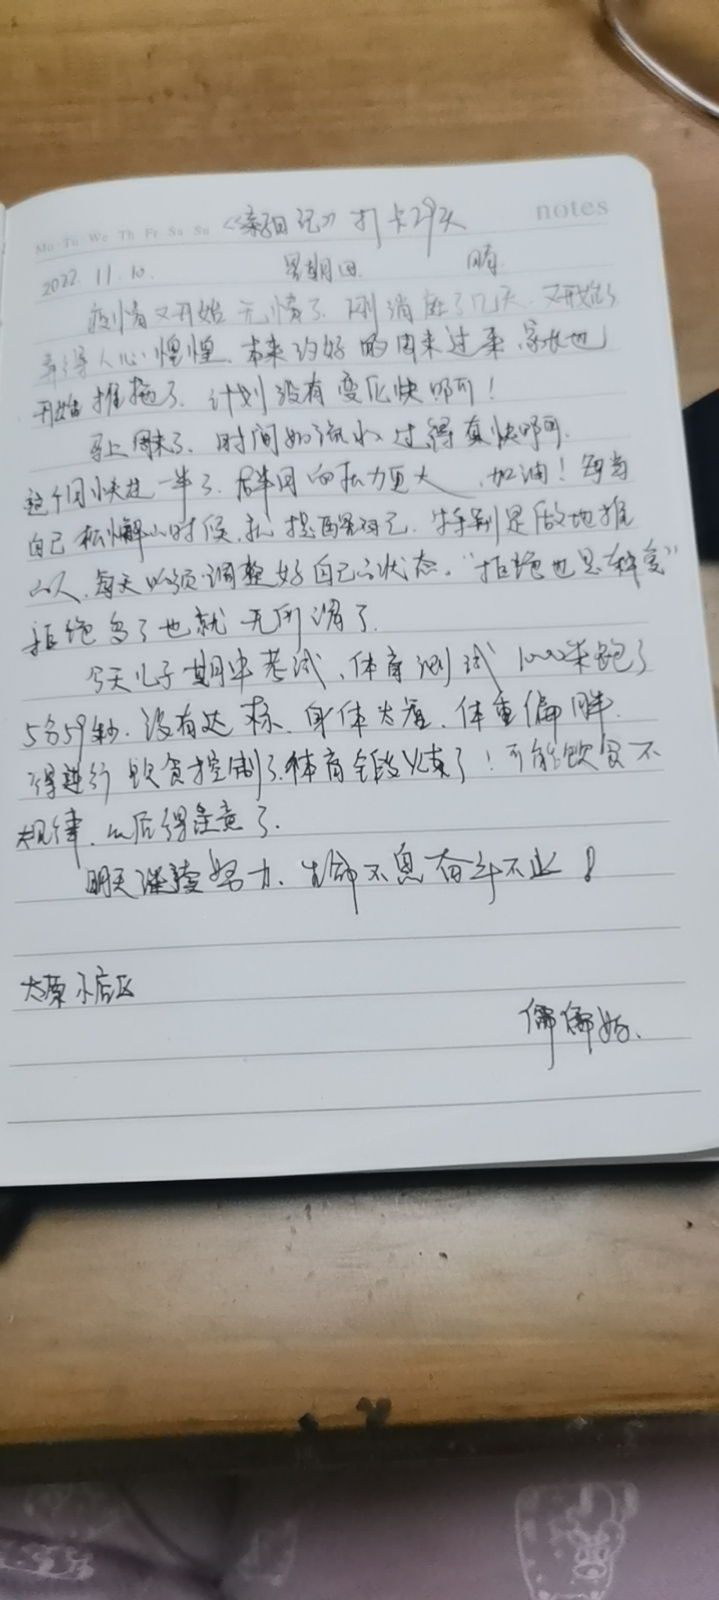 Mo Tu We Th Fr Sa Su 《亲子日记》打卡29天 notes
2022.11.10. 星期四. 晴
疫情又开始无情了.刚消停了几天.又开始了
弄得人心惶惶、本来约好的周末过来、家长也
开始推拖了.计划没有变化快啊!
马上周末了.时间如流水过得真快啊.
这个月快过一半了.后半月的压力更大、加油!每当
自己松懈的时候,就提醒自己.特别是做地推
的人、每天必须调整好自己的状态。"拒绝也是种爱"
拒绝多了也就无所谓了.
今天儿子期中考试、体育测试1000米跑了
5分59秒.没有达标、身体太虚、体重偏胖.
得进行饮食控制了.体育全段结束了!可能饮食不
规律、以后得注意了.
明天继续努力、生命不息奋斗不止!
太原小店区
儒儒妈.